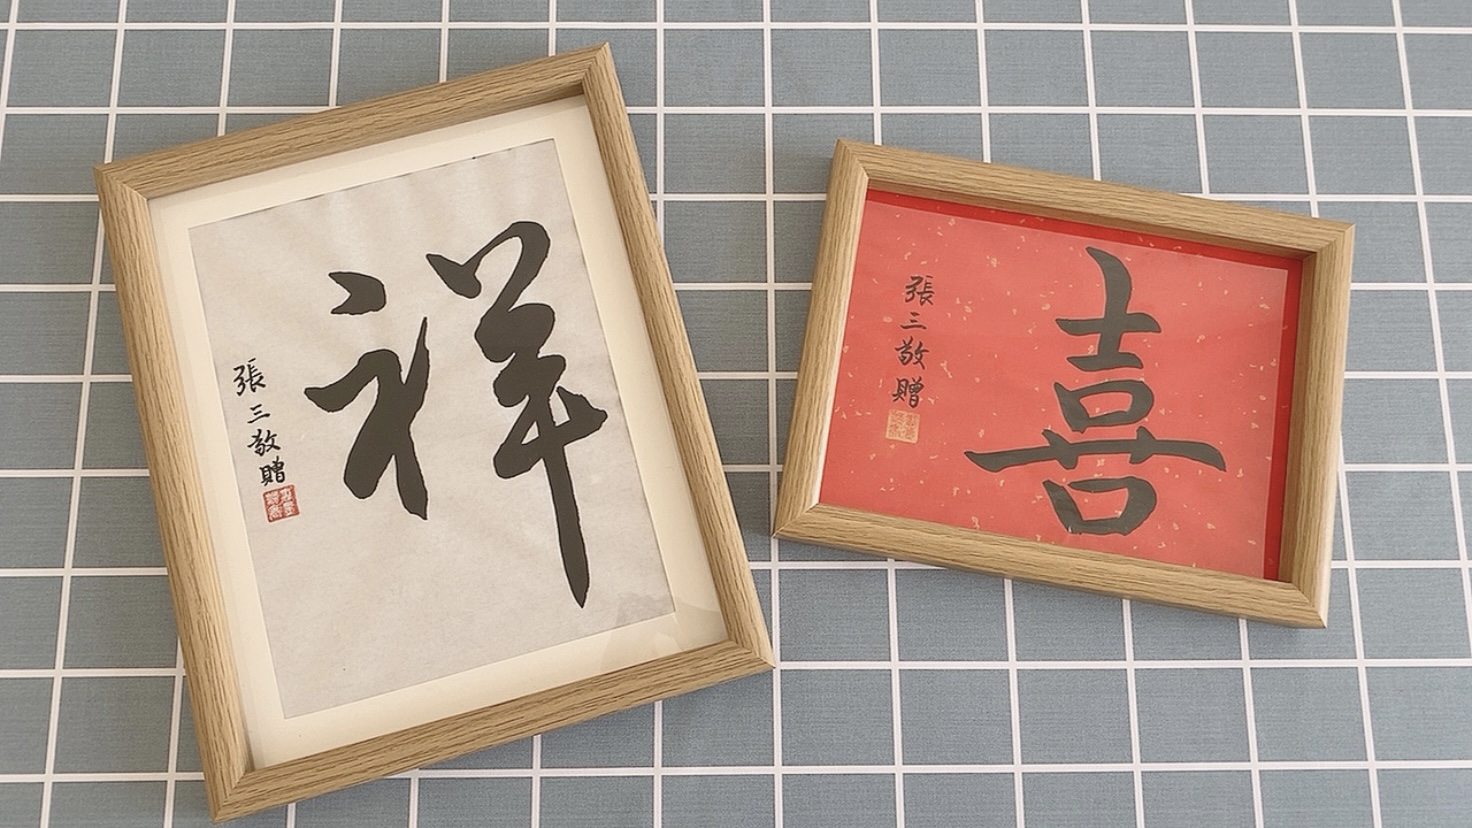 祥
張三敬贈
喜
張三敬贈